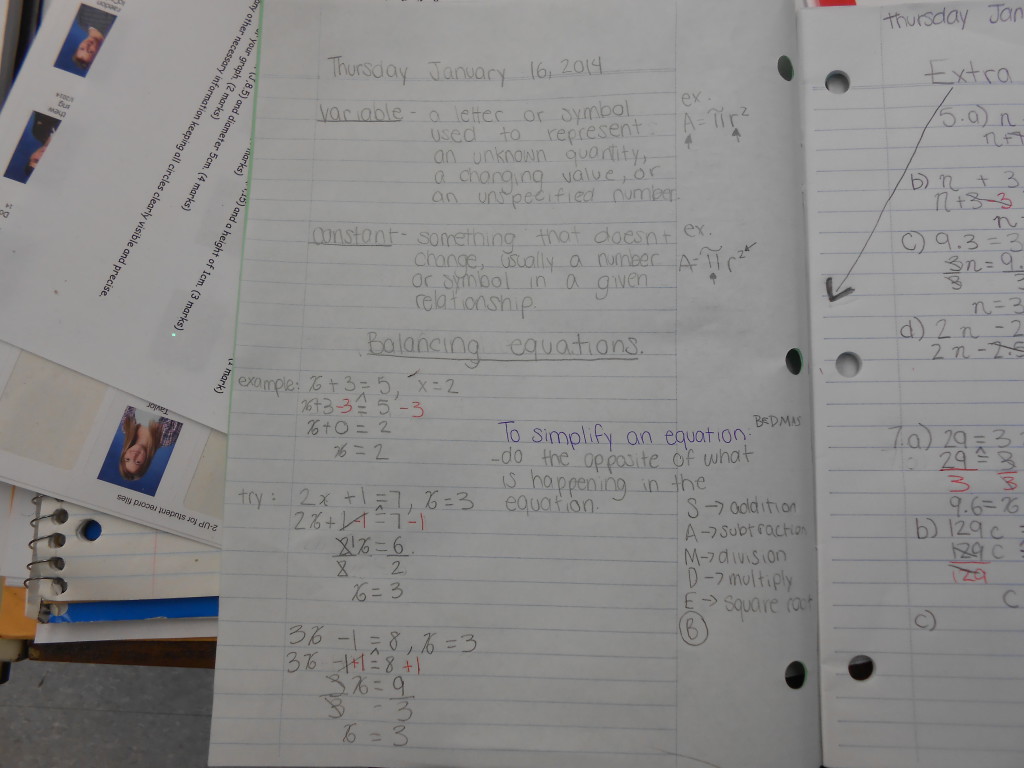 Thursday January 16, 2014
variable - a letter or symbol
used to represent
an unknown quantity,
a changing value, or
an unspecified number
ex.
A = πr²
constant - something that doesnt
change, usually a number
or symbol in a given
relationship.
ex.
A = πr²
Balancing equations.
example: x + 3 = 5, x = 2
x+3-3 = 5 -3
x+0 = 2
x = 2
try: 2x + 1 = 7, x = 3
2x+1-1 = 7-1
2x = 6
2 2
x = 3
3x - 1 = 8, x = 3
3x -1+1 = 8 +1
3x = 9
3 = 3
x = 3
BEDMAS
To simplify an equation:
-do the opposite of what
is happening in the
equation.
S → addition
A → subtraction
M → division
D → multiply
E → square root
B
Thursday Jan
Extra
5.a) n
n+
b) n + 3
n+3-3
n=
c) 9.3 = 3
3n = 9.
3
n = 3
d) 2n - 2
2n - 2.5
7.a) 29 = 3
29 = 3
3 3
9.6 = x
b) 129c =
129c =
129
c
c)
your graph. (2 marks)
8.5) and diameter 5cm. (4 marks)
ny other necessary information keeping all circles clearly visible and precise.
and a height of 1cm. (3 marks)
mark)
Taylor
2-UP for student record files